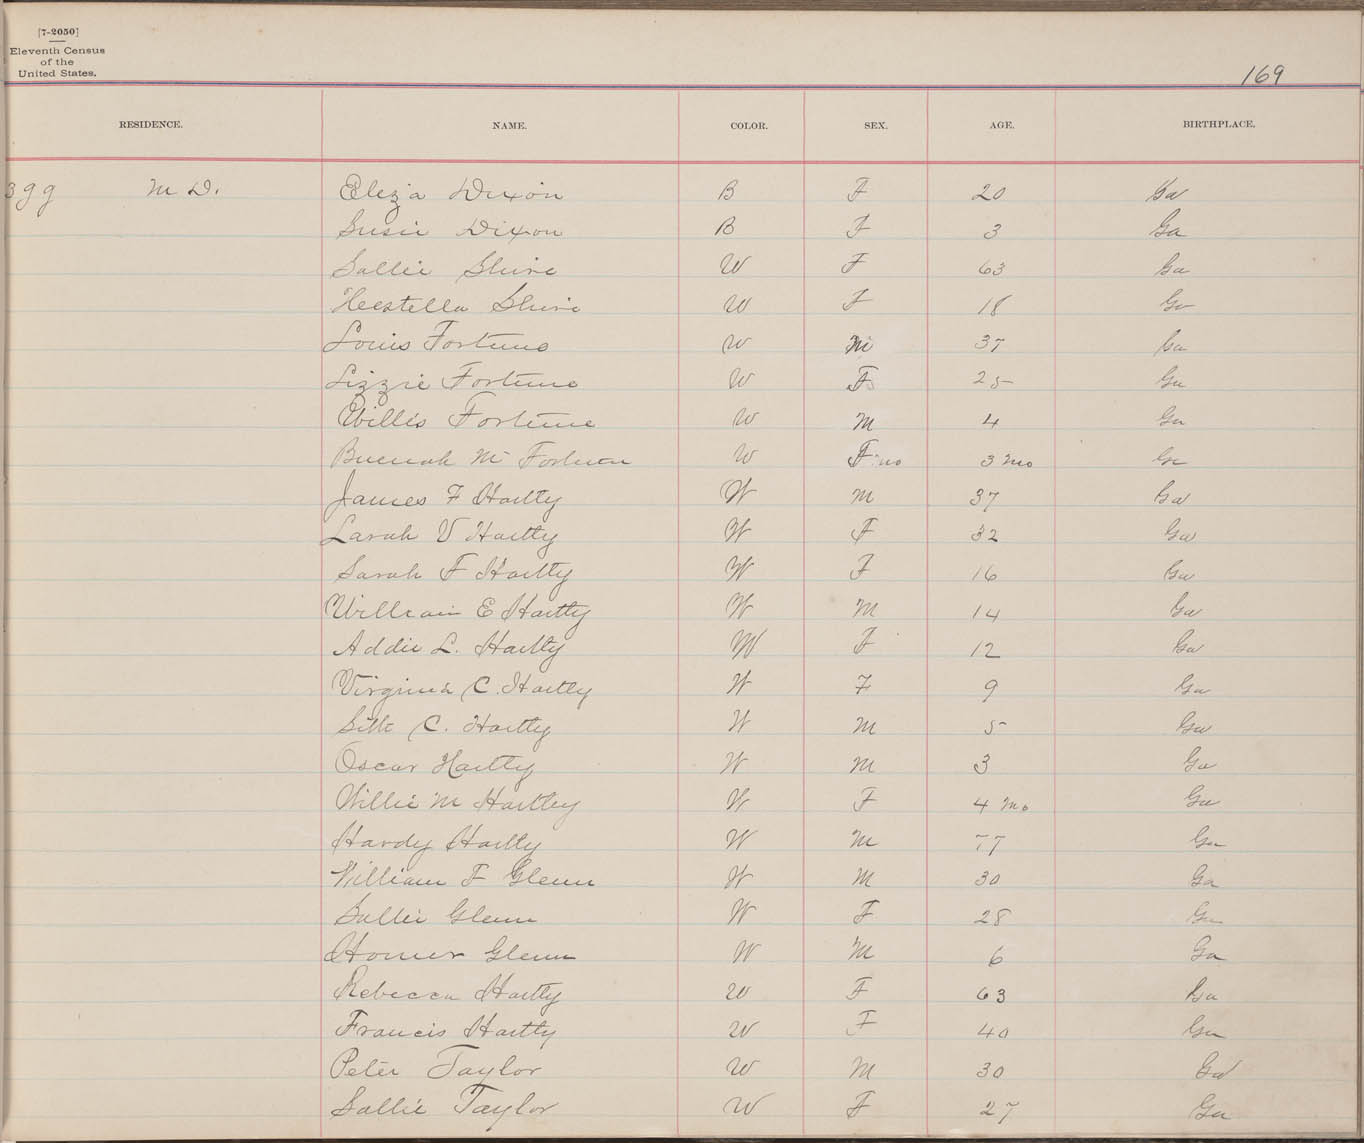 [7-2050]
Eleventh Census
of the
United States.
169
RESIDENCE. NAME. COLOR. SEX. AGE. BIRTHPLACE.
399 M D. Eliza Dixon B F 20 Ga
Susie Dixon B F 3 Ga
Sallie W F 63 Ga
W F 18 Ga
Louis Fortune W M 37 Ga
Lizzie Fortune W F 25 Ga
Willis Fortune W M 4 Ga
M Fortune W F 3 mo Ga
James F Hartly W M 37 Ga
Sarah V Hartly W F 32 Ga
Sarah F Hartly W F 16 Ga
William E Hartly W M 14 Ga
Addie L. Hartly W F 12 Ga
Virginia C. Hartly W F 9 Ga
Seth C. Hartly W M 5 Ga
Oscar Hartly W M 3 Ga
Willie M Hartley W F 4 mo Ga
Hardy Hartly W M 77 Ga
William F Glenn W M 30 Ga
Sallie Glenn W F 28 Ga
Homer Glenn W M 6 Ga
Rebecca Hartly W F 63 Ga
Francis Hartly W F 40 Ga
Peter Taylor W M 30 Ga
Sallie Taylor W F 27 Ga